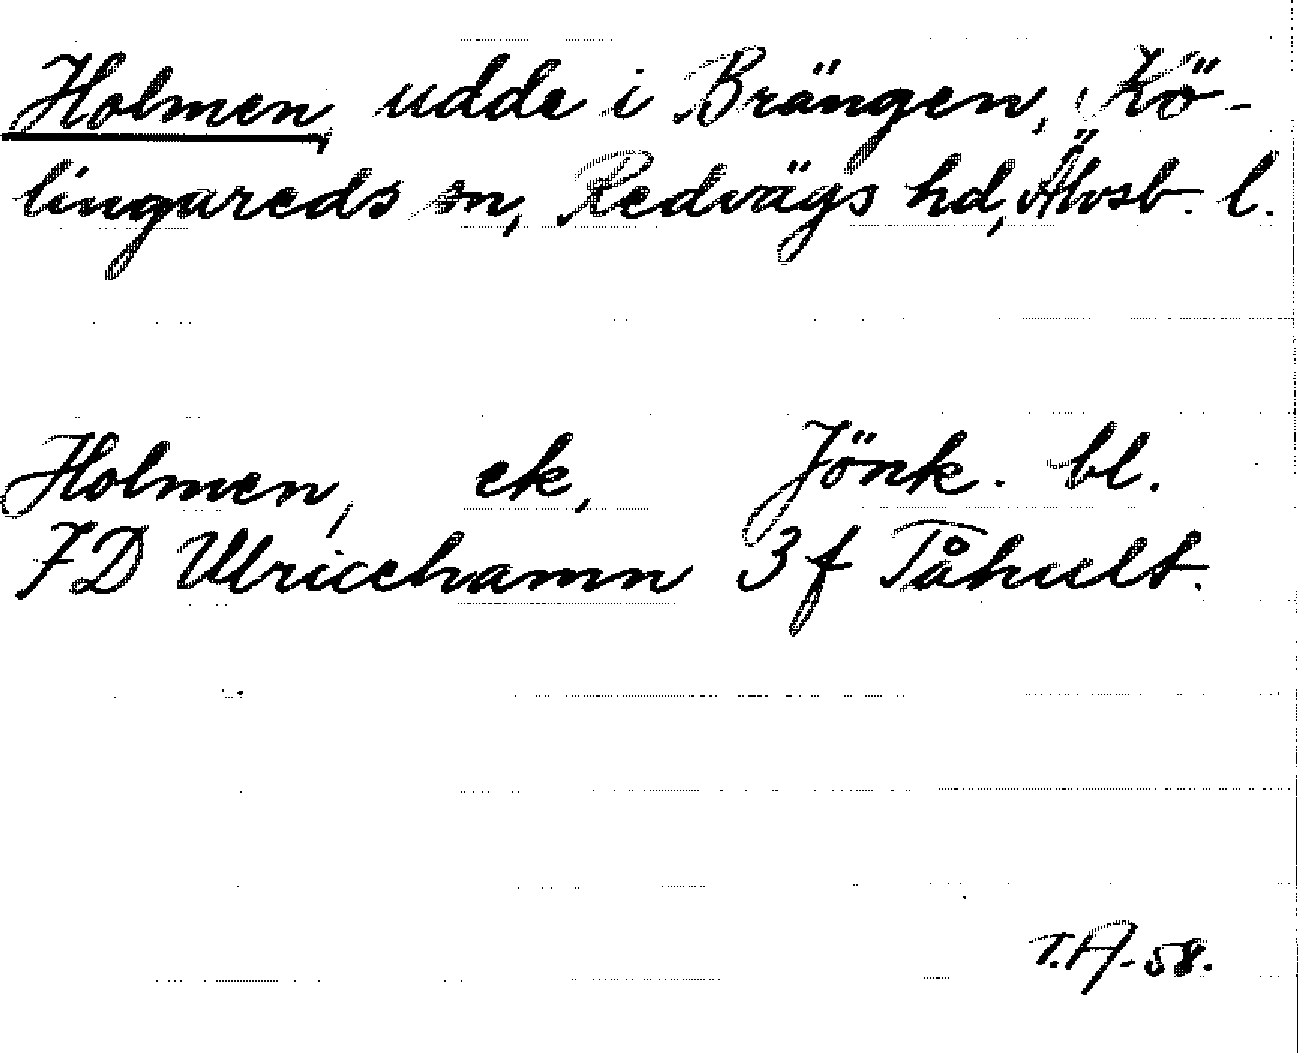 Holmen, udde i Brängen, Kö-
lingareds sn, Redvägs hd, Älvsb. l.
Holmen, ek, Jönk. bl.
7D Ulricehamn 3f Tåhult.
T.A-58.